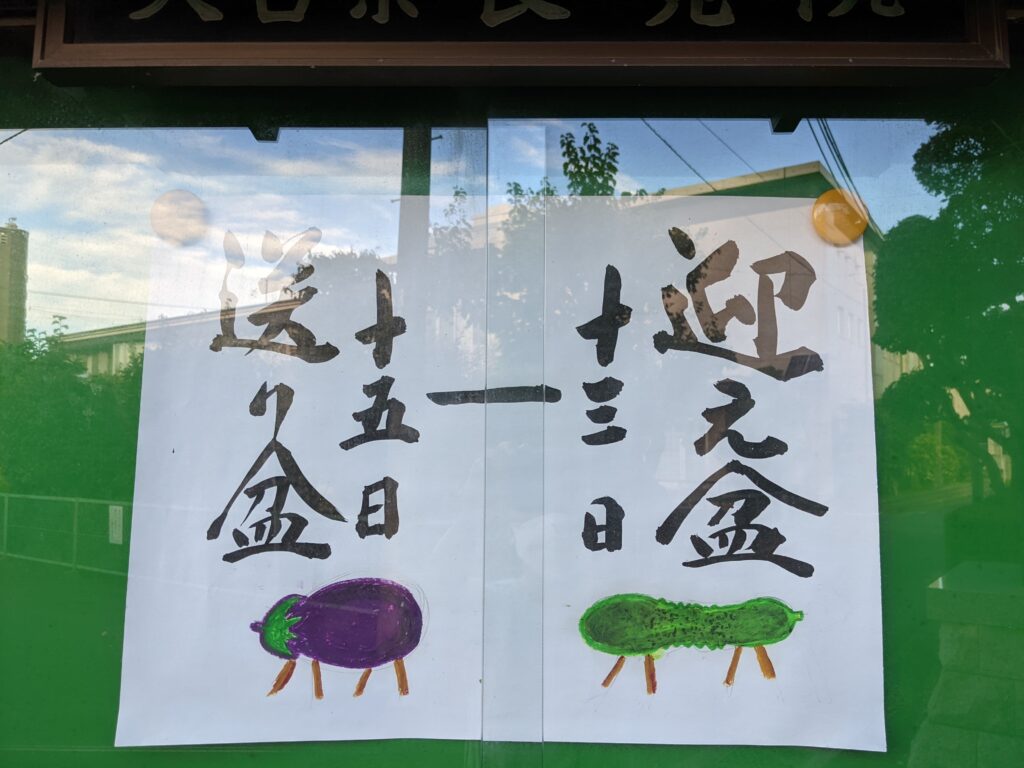 迎え盆
十三日
—
十五日
送り盆